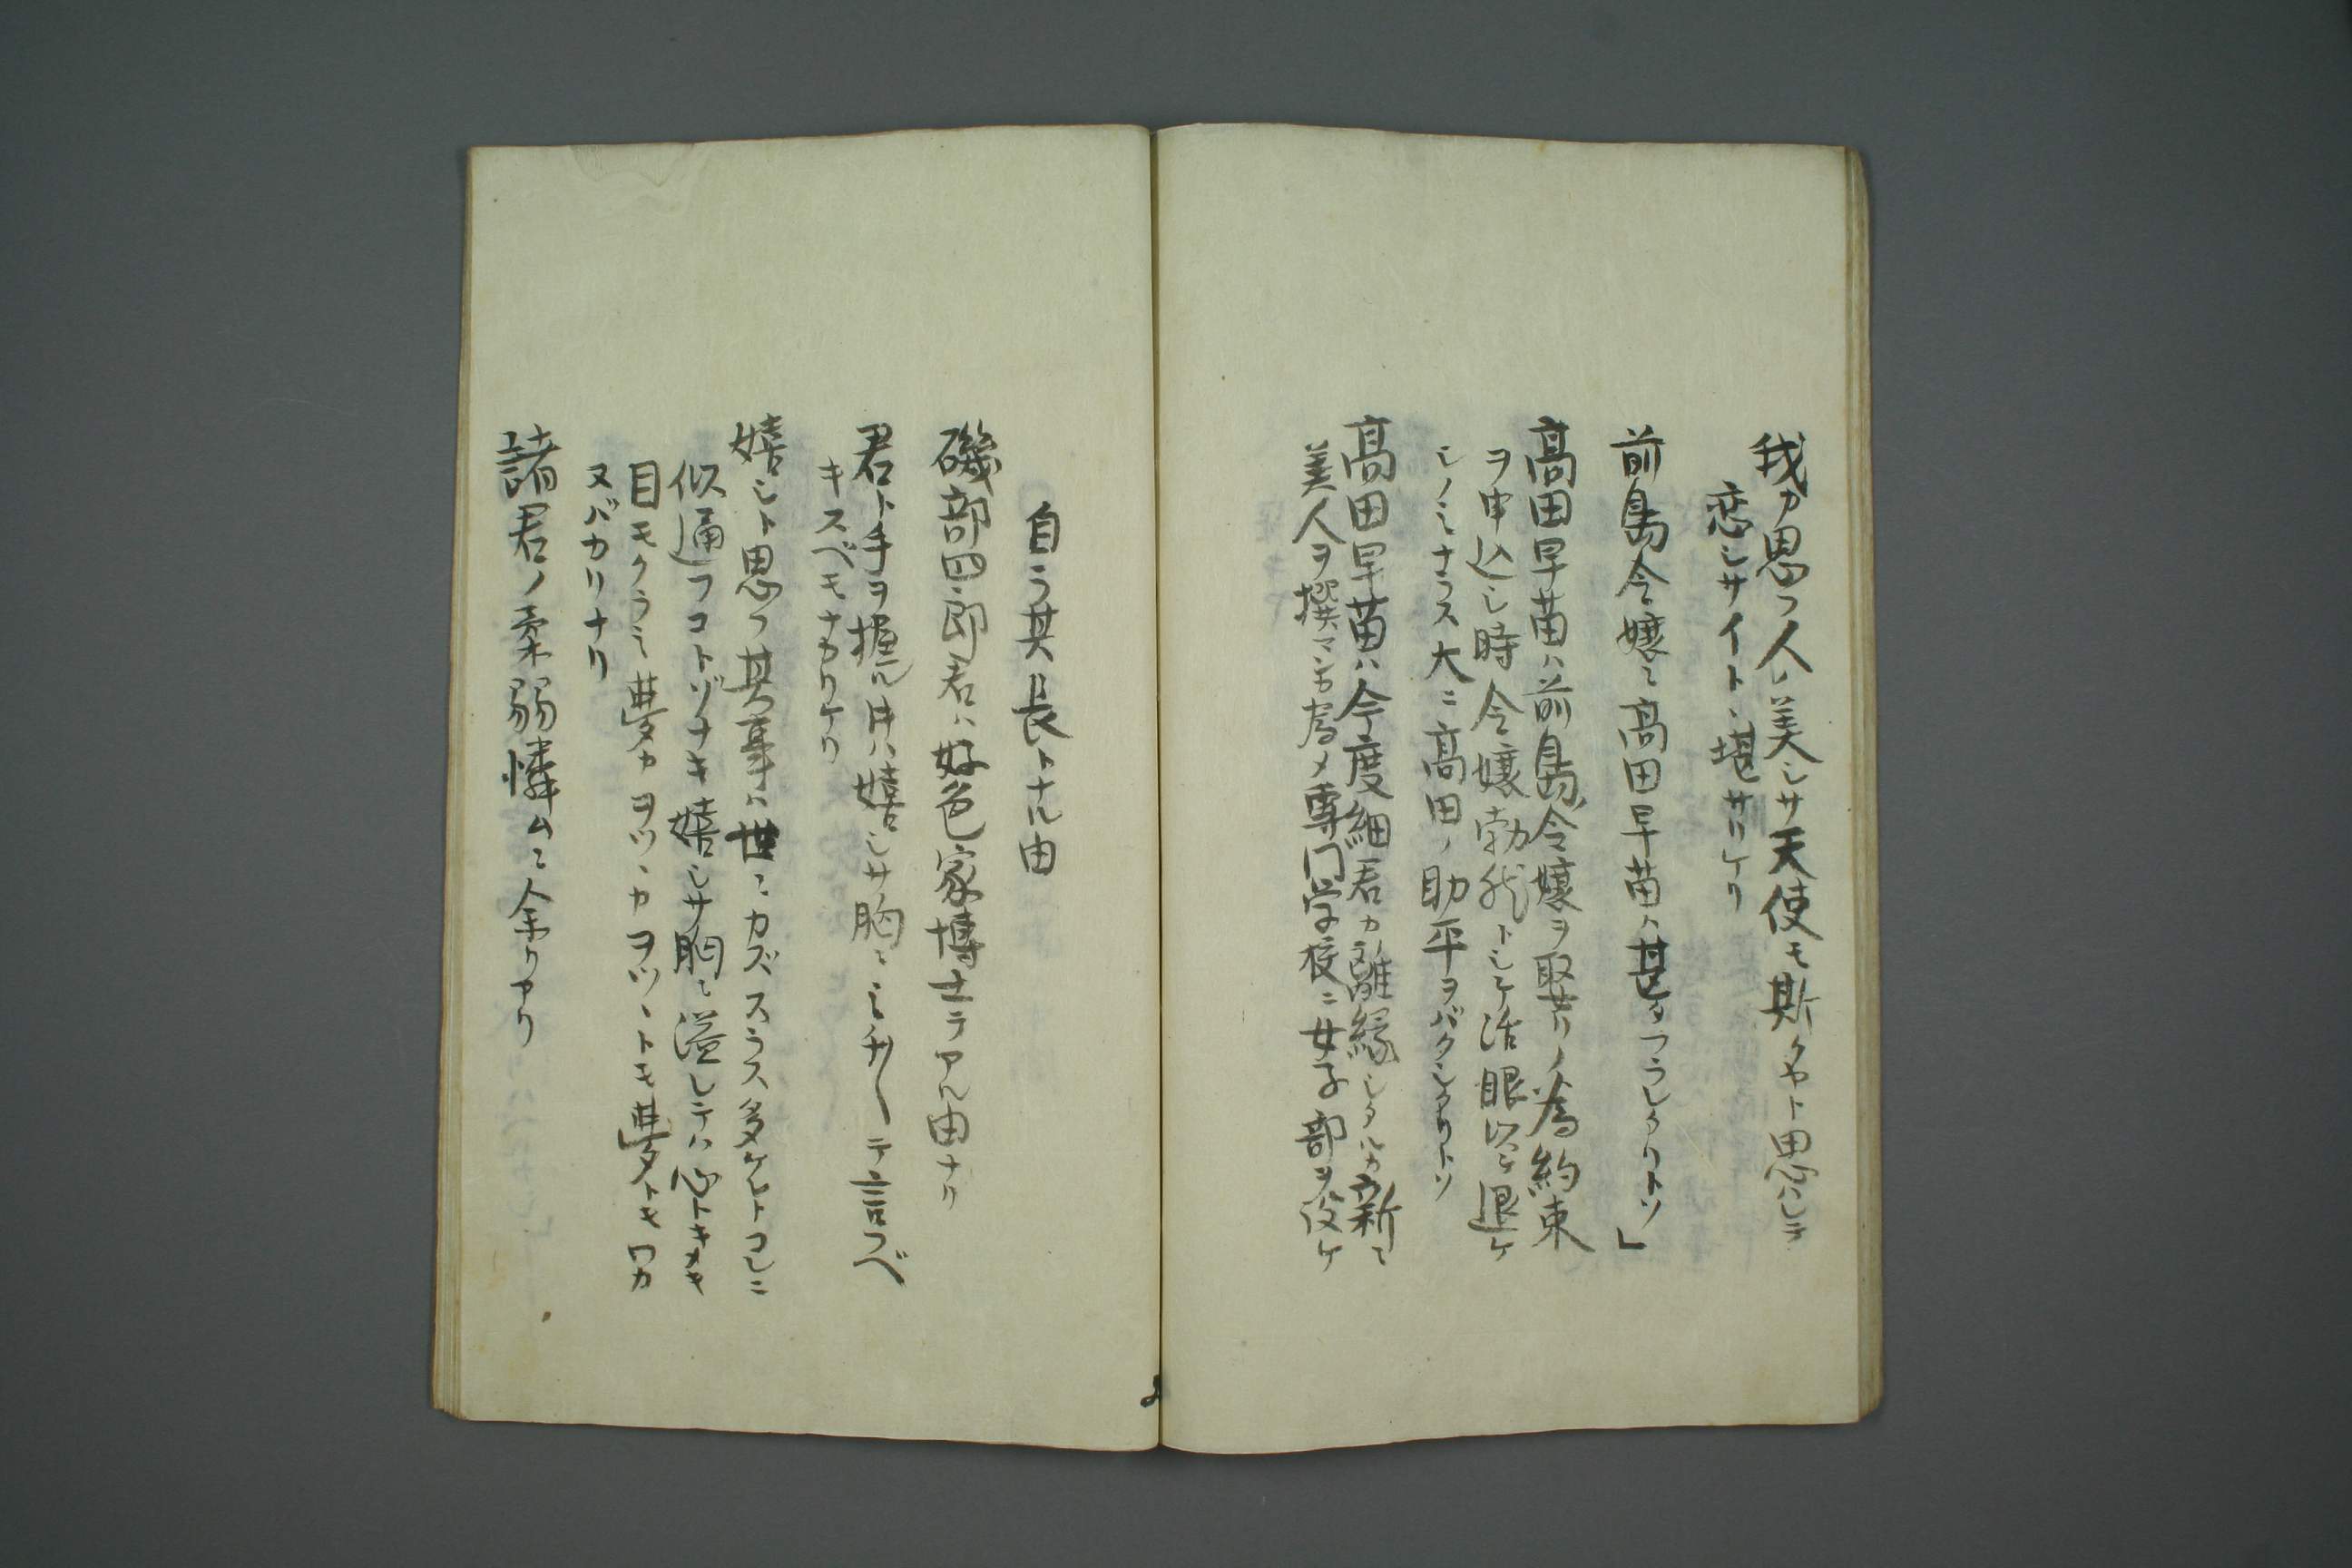 我カ思フ人ハ美シサ天使モ斯クヤト思ハレテ
恋シサイトヽ堪サリケリ
前島令嬢ニ高田早苗ハ甚タフラレタリトソ」
高田早苗ハ前島令嬢ヲ娶リノ為約束
ヲ申込シ時令嬢勃然トシテ活眼以テ退ケ
シノミナラス大ニ高田ノ助平ヲバクシタリトソ
高田早苗ハ今度細君カ離縁シタルカ新ニ
美人ヲ撰マンカ為メ専門学校ニ女子部ヲ設ケ
自ラ其長トナル由
磯部四郎君ハ好色家博士テアル由ナリ
君ト手ヲ握ル時ハ嬉シサ胸ニミチ〳〵テ言フベ
キスベモナカリケリ
嬉シト思フ其事ハ世ニカズスラス多ケレトコレニ
似通フコトゾナキ嬉シサ胸ニ溢レテハ心トキメキ
目モクラミ夢カヨツヽカヨツヽトモ夢トモワカ
ヌバカリナリ
諸君ノ柔弱憐ムニ余リアリ